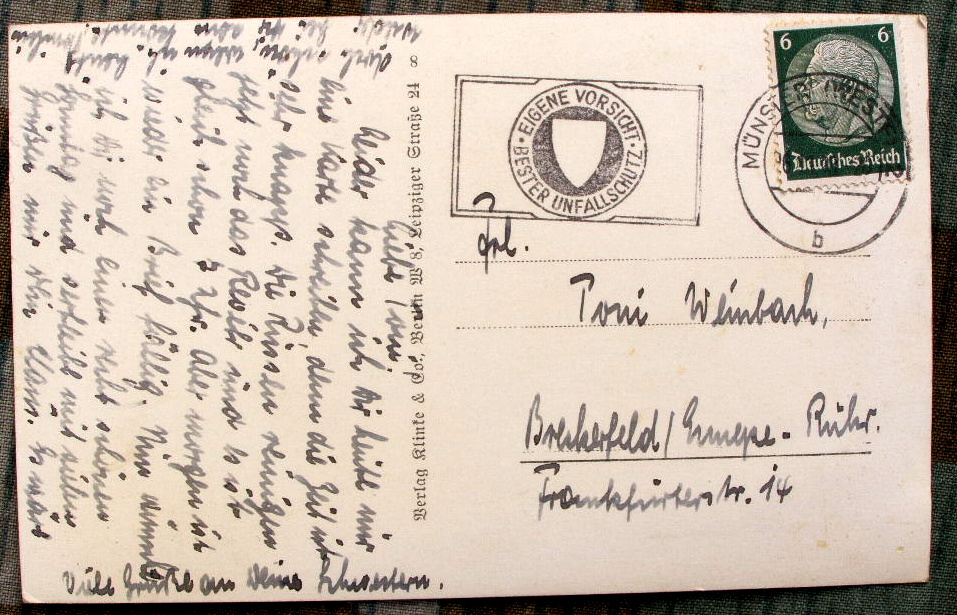 Liebe Toni
Leider kann ich Dir heute nur
eine Karte schreiben denn die Zeit ist
sehr knapp. Wir müssen reinigen
jetzt noch das Revier und es ist
gleich schon 7 Uhr. Aber morgen ist
wieder ein Brief fällig. Nun wünsche
ich Dir noch einen recht schönen
Sonntag und verbleibe mit vielen
Grüßen nur Dein Hans. Es wäre
Viele Grüße an Deine Schwestern.
Verlag Klinke & Co., Berlin W 8, Leipziger Straße 24
8
EIGENE VORSICHT
BESTER UNFALLSCHUTZ
6 6
Deutsches Reich
MÜNSTER (WESTF)
b
Frl.
Toni Weinbach,
Breckerfeld/Ennepe-Ruhr.
Frankfurterstr. 14